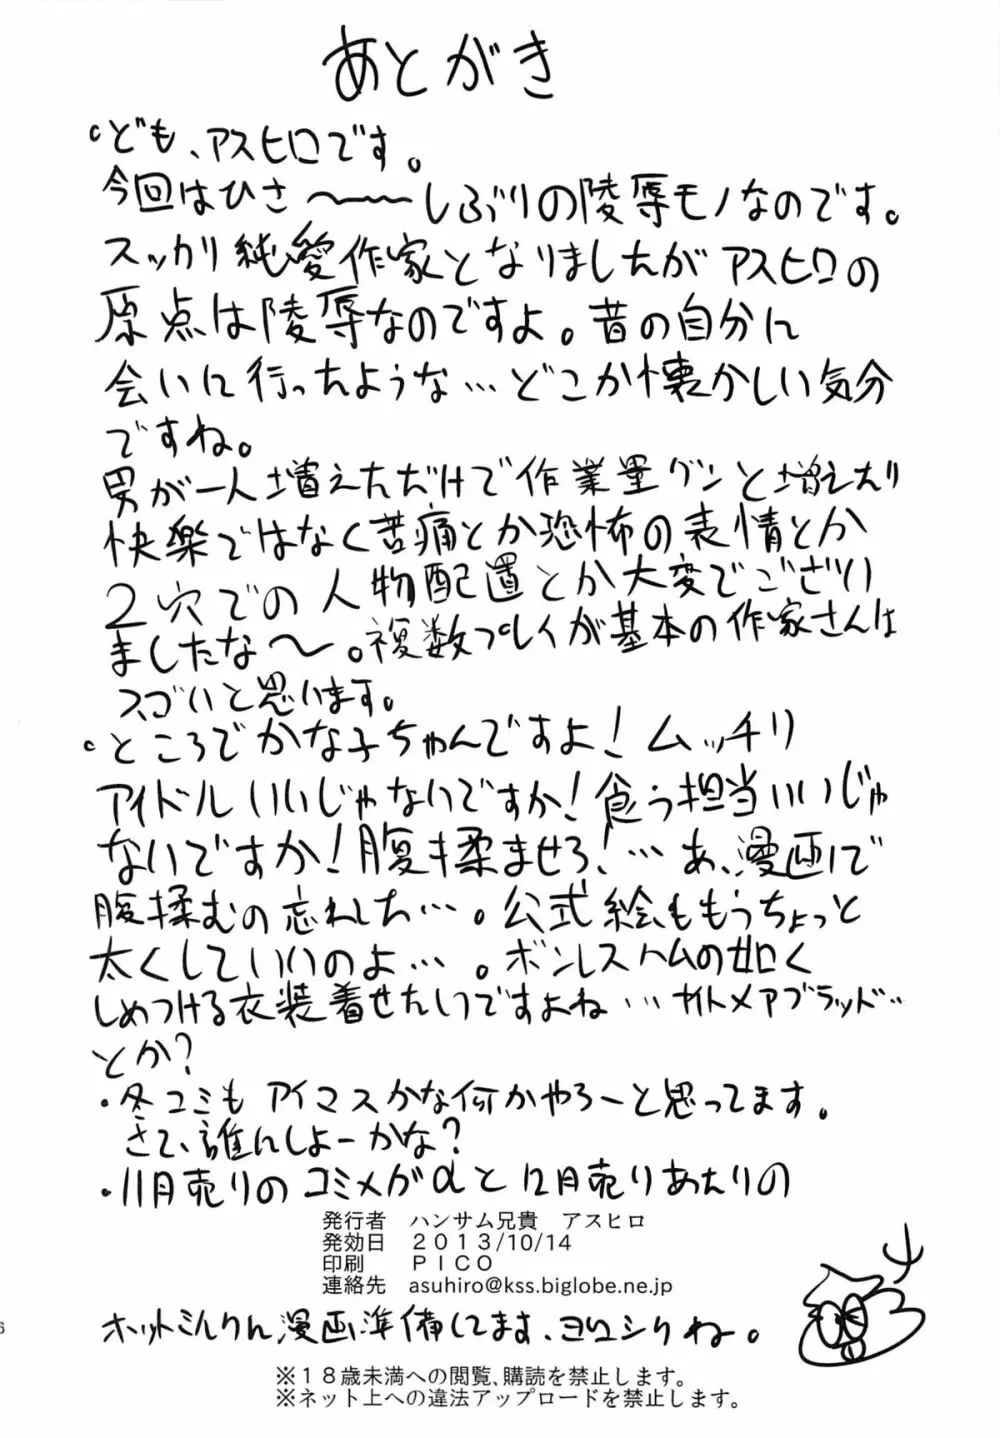 あとがき
・ども、アスヒロです。
今回はひさ〜〜〜しぶりの陵辱モノなのです。
スッカリ純愛作家となりましたがアスヒロの
原点は陵辱なのですよ。昔の自分に
会いに行ったような…どこか懐かしい気分
ですね。
男が一人増えただけで作業量グンと増えたり
快楽ではなく苦痛とか恐怖の表情とか
2穴での人物配置とか大変でござい
ましたな〜。複数プレイが基本の作家さんは
スゴいと思います。
・ところでかな子ちゃんですよ!ムッチリ
アイドルいいじゃないですか!食う担当いいじゃ
ないですか!腹揉ませろ!…あ、漫画で
腹揉むの忘れした…。公式絵ももうちょっと
太くしていいのよ…。ボンレスハムの如く
しめつける衣装着せたいですよね…ナイトメアブラッド…
とか?
・冬コミもアイマスかな何かやろーと思ってます。
さて、誰にしよーかな?
・11月売りのコミメガαと12月売りあたりの
発行者 ハンサム兄貴 アスヒロ
発効日 2013/10/14
印刷 PICO
連絡先 asuhiro@kss.biglobe.ne.jp
ホットミルクに漫画準備してます、ヨロシクね。
※18歳未満への閲覧、購読を禁止します。
※ネット上への違法アップロードを禁止します。
6